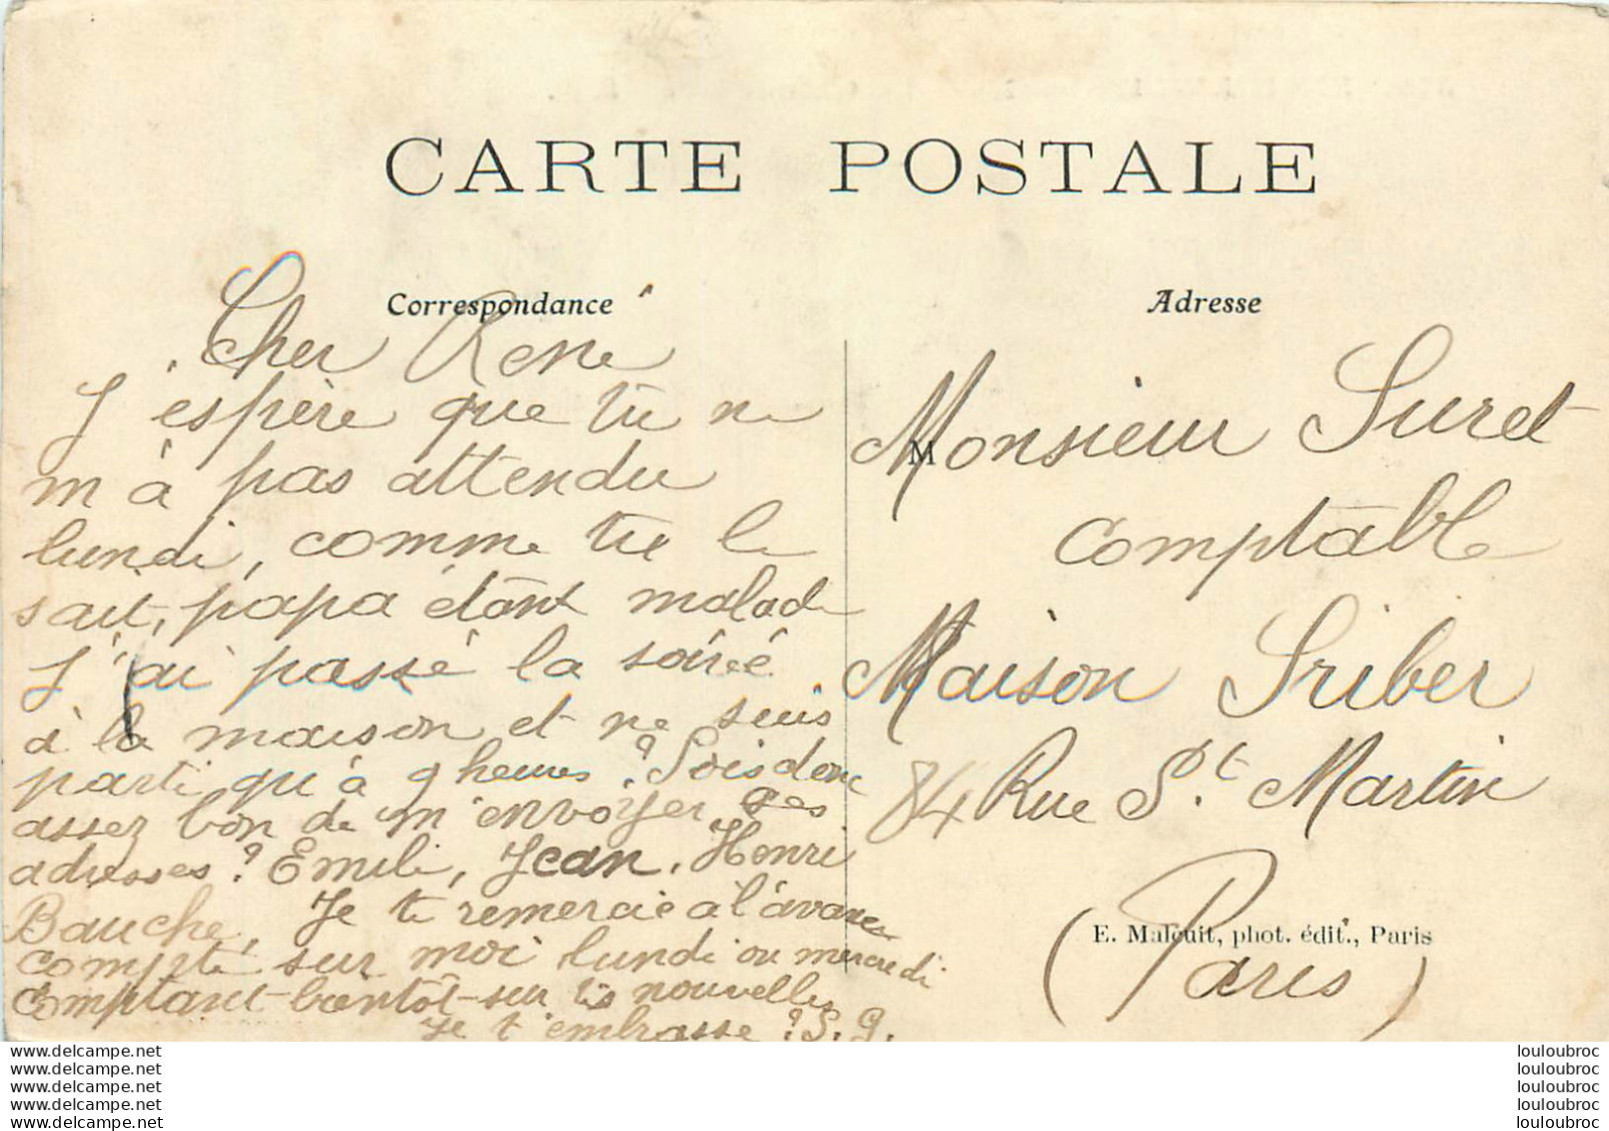 CARTE POSTALE
Correspondance
Cher René
J'espère que tu ne
m'à pas attendu
lundi, comme tu le
sait, papa étant malade
J'ai passé la soiréé
à la maison et ne suis
parti qu'à 9 heures? Sois donc
assez bon de m'envoyer ses
adresses? Emile, Jean, Henri
Bauche, Je te remercie à l'avance
compte sur moi lundi ou mercredi
Comptant bientôt sur tes nouvelles
Je t'embrasse? S. G.
Adresse
M
Monsieur Suret
Comptable
Maison Sriber
84 Rue St. Martin
(Paris)
E. Malcuit, phot. édit., Paris
www.delcampe.net
www.delcampe.net
www.delcampe.net
www.delcampe.net
www.delcampe.net
louloubroc
louloubroc
louloubroc
louloubroc
louloubroc